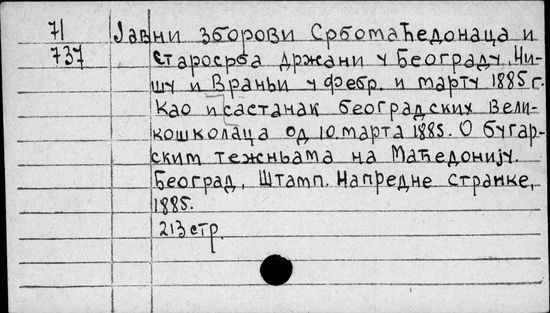 71 Јавни зборови Србомаћедонаца и
737 Старосрба држани у Београду, Ни-
шу и Врањи у фебр. и марту 1885 г.
Као и састанак београдских Вели-
кошколаца од 10. марта 1885. О бугар-
ским тежњама на Маћедонију.
Београд, Штамп. Напредне странке,
1885.
213 стр.